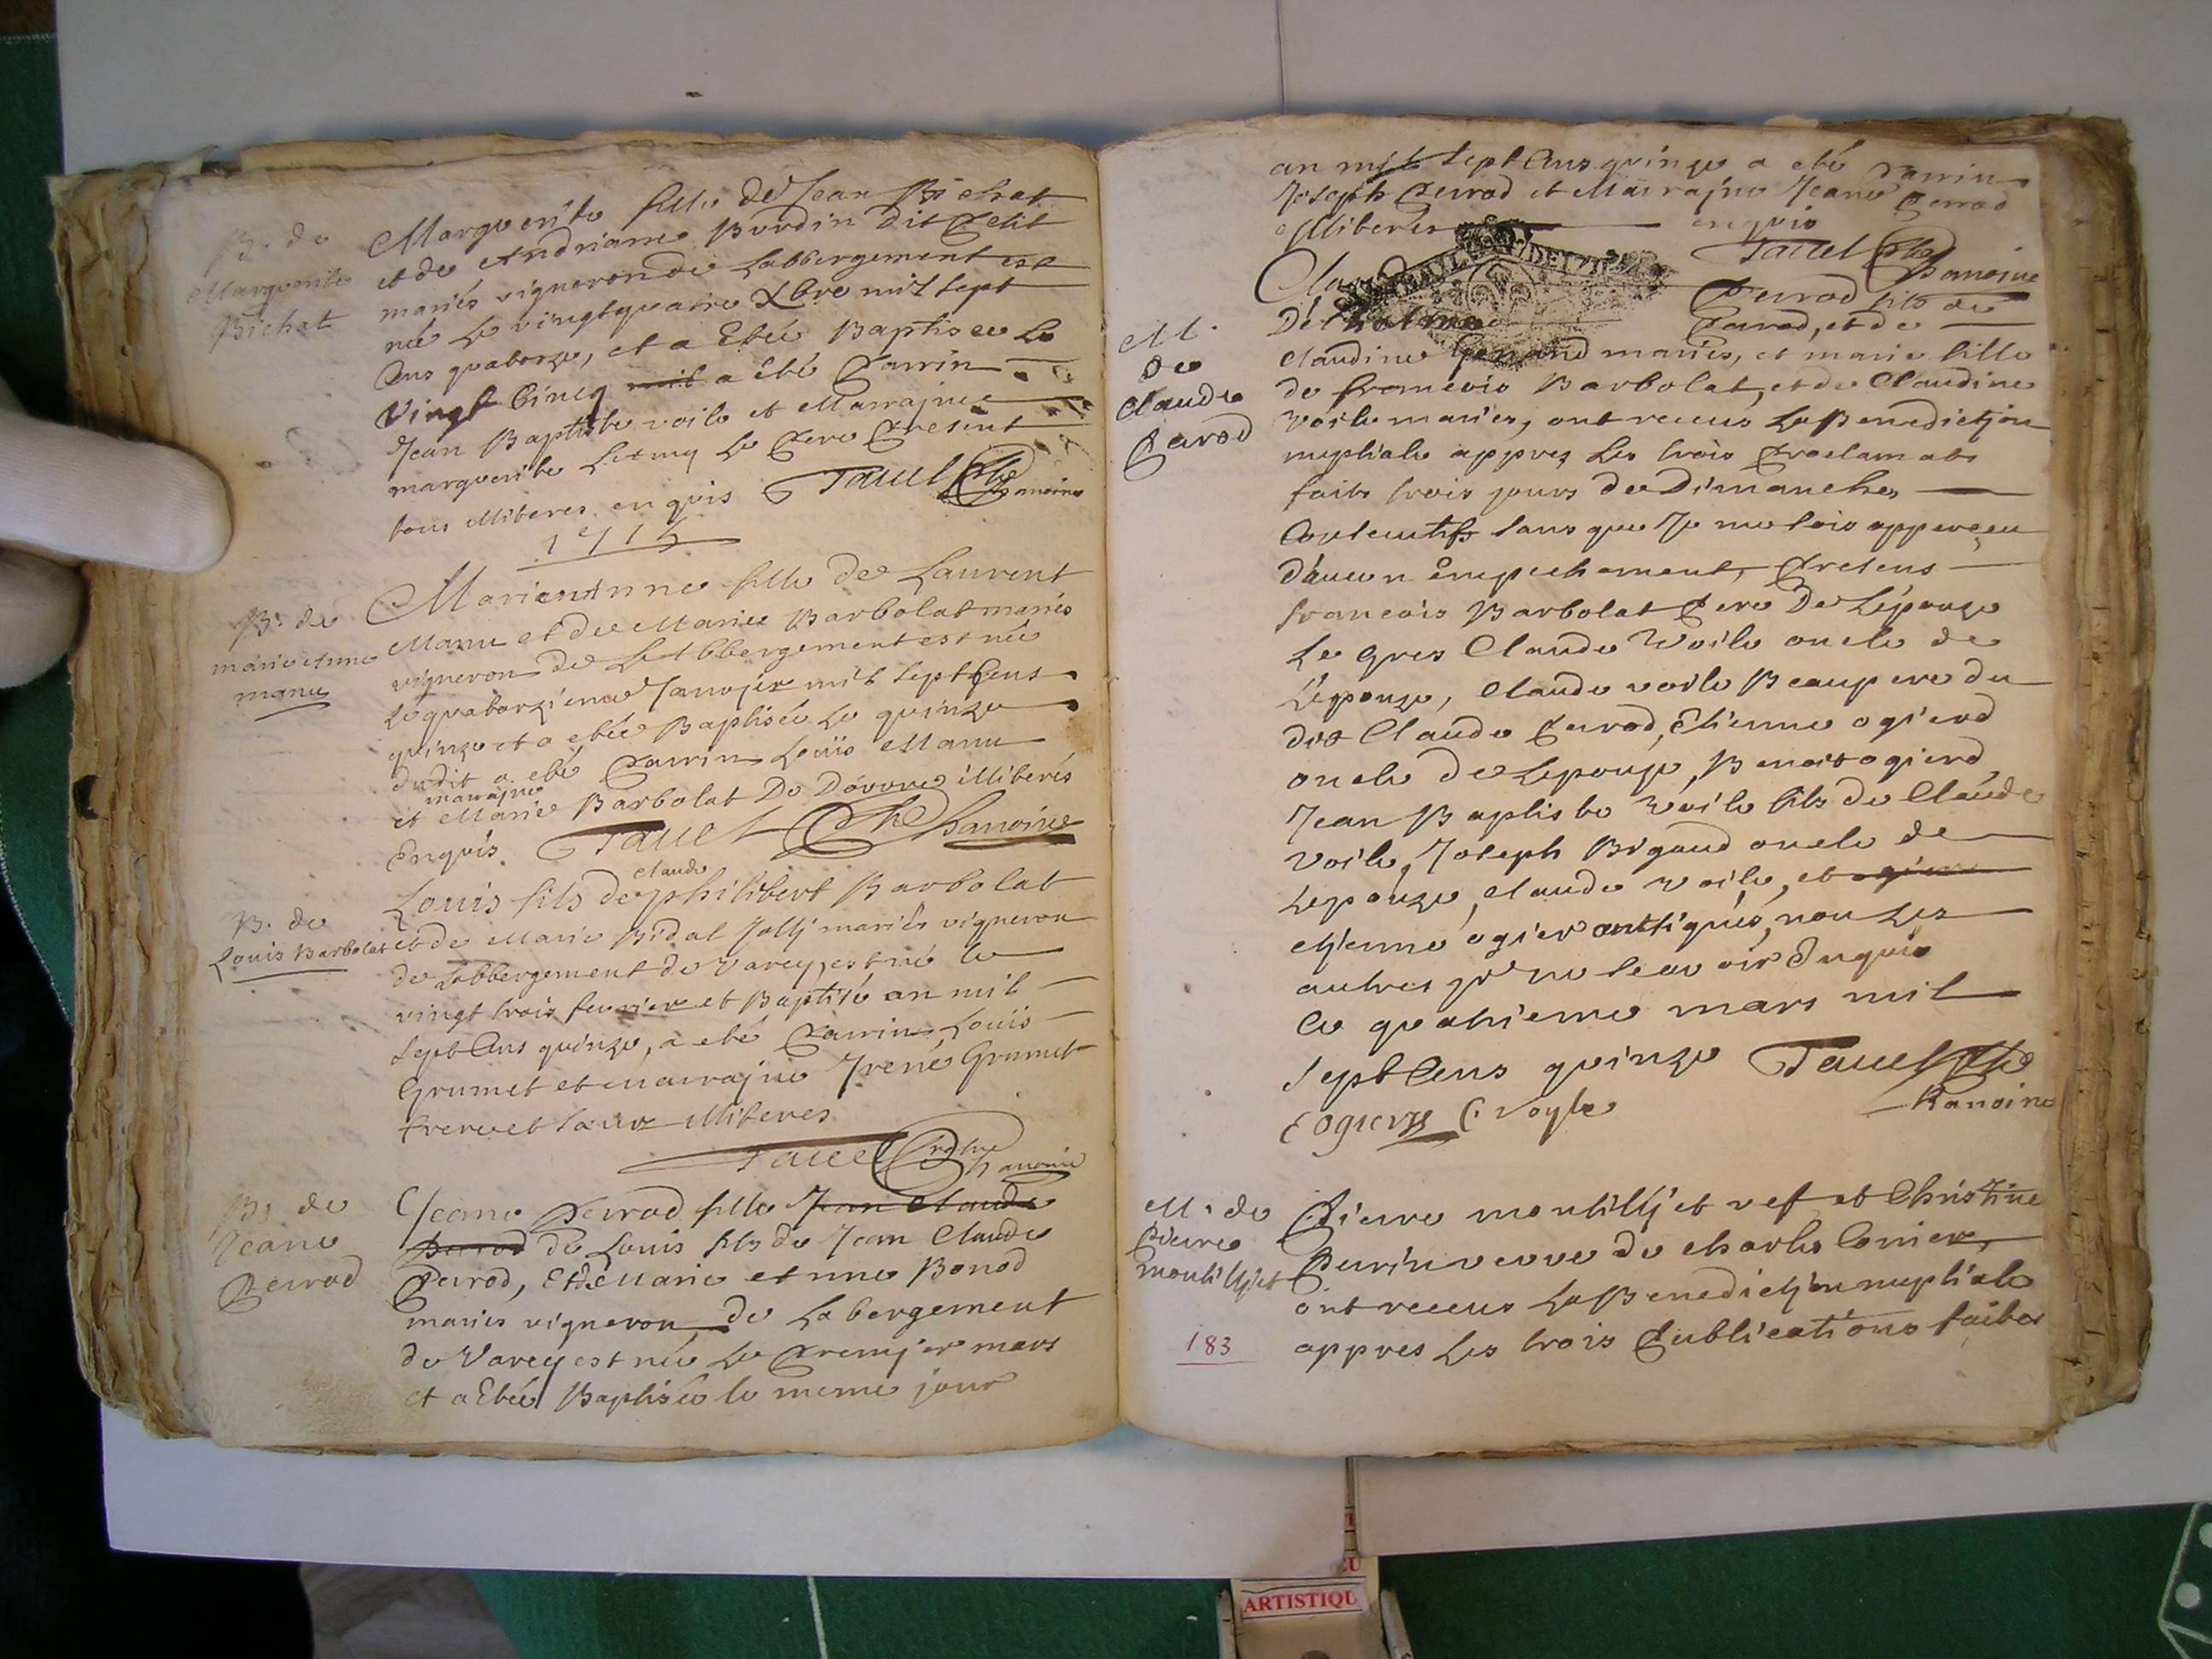 B. de
Marguerite
Bichat
Marguerite fille de Jean Bichat
et de Andriane Burdin dit Petit
mariés vigneron de Labbergement est
née Le vingtquatre Xbre mil sept
Cens quatorze, et a Etée Baptisee Le
vingt Cincq mil a été Parrin
Jean Baptiste voile et Marrajne
marguerite Letmy Le Pere Present
tous illiteres enquis Tavel Pbr
Chanoine
1715
B. de
marie Anne
manu
Marie Anne fille de Laurent
Manu et de Marie Barbolat mariés
vigneron de LAbbergement est née
Le quatorzieme Janvjer mil sept Cens
quinze et a etée Baptisée Le quinze
dudit a eté Parrin Louis Manu
marrajne
et Marie Barbolat De Dóuvre illiterés
Enquis. Tavel Pbr Chanoine
B. de
Louis Barbolat
claude
Louis fils de philibert Barbolat
et de Marie Bidal Jollj mariés vigneron
de Labbergement de Varey, est né le
vingt trois fevrier et Baptisé an mil
sept Cens quinze, a eté Parrin Louis
Grumet et marrajne Irené Grumet
frere et sœur illiteres
Tavel Pbr
Chanoine
B. de
Jeane
Perrod
Jeane Perrod fille Jean Claude
Perrod de Louis fils de Jean Claude
Perrod, Et de Marie Anne Bonod
mariés vigneron, de Labergement
de Varey est née Le Premjer mars
et a Etée Baptisée le meme jour
an mil sept Cens quinze a eté Parrin
Joseph Perrod et Marrajne Jeane Perrod
illiterés enquis
Tavel Pbr
Chanoine
M.
de
Claude
Perrod
Claude Perrod fils de
De Perrod, et de
claudine mariés, et marie fille
de francois Barbolat, et de Claudine
voile mariés, ont receus La Benedictjon
nuptiale appres Les trois Proclamats
faits trois jours de Dimanches
Consecutifs sans que Je me sois apperceu
d'aucun Empechement, Presens
francois Barbolat Pere De Lépouze
Le gres Claude Voile oncle de
Lépouze, Claude voile Beaupere du
dit Claude Perrod, Etienne ogierd
oncle de Lepouze, Benoit ogierd,
Jean Baptiste Voile fils de Claude
voile, Joseph Brigaud oncle de
Lepouze, claude voile, et ogier
etjenne ogier ontsignés, non Les
autres pr ne sçavoir Enquis
Ce quatrieme mars mil
sept Cens quinze Tavel Pbr
Chanoine
E ogier C voyle
M. de
Pierre
montilljet
Pierre montilljet vef et Christine
Perrin veuve de charles Cerrier,
ont receus La Benedictjon nuptiale
appres Les trois Publications faites
183
ARTISTIQU